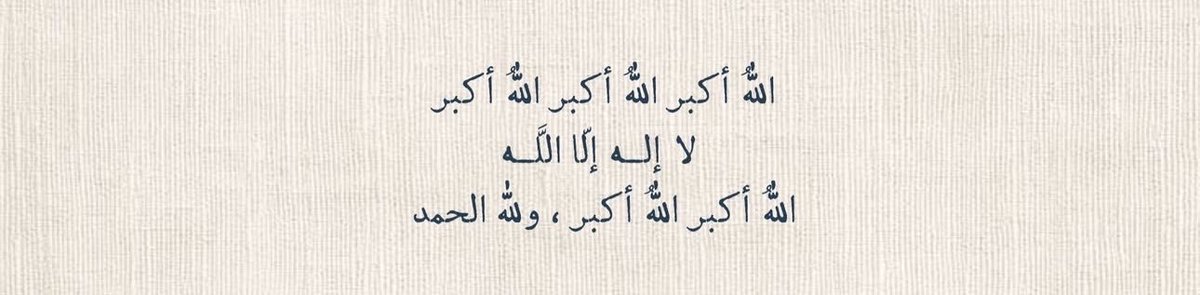 اللهُ أكبر اللهُ أكبر اللهُ أكبر
لا إلـــه إلّا اللَّـــه
اللهُ أكبر اللهُ أكبر ، ولله الحمد